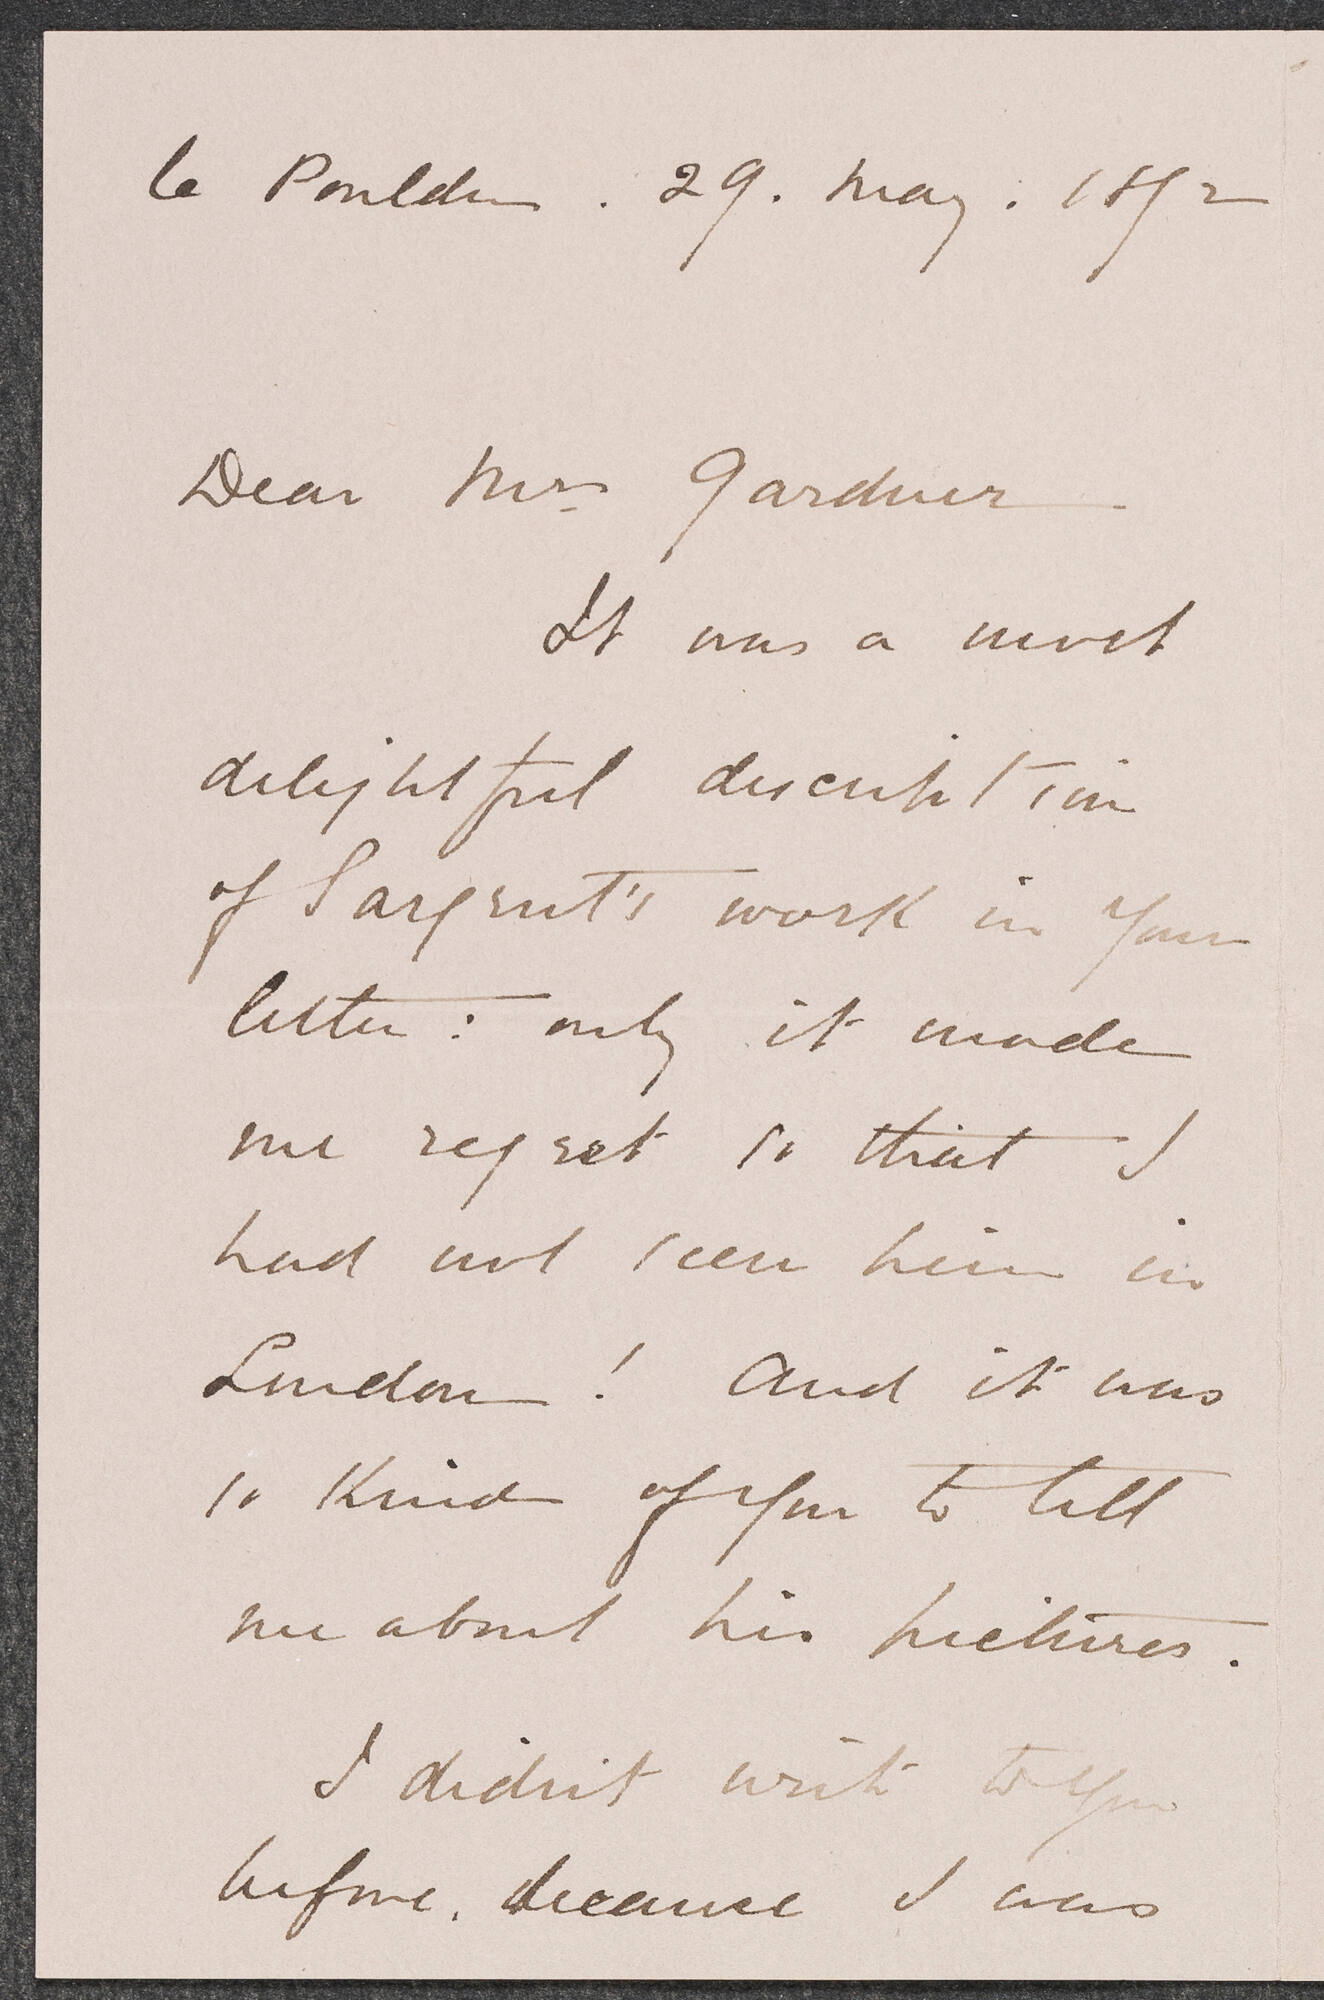 le Pouldu. 29. May. 1892
Dear Mrs Gardner
It was a most
delightful description
of Sargent's work in your
letter: only it made
me regret so that I
had not seen him in
London! And it was
so kind of you to tell
me about his pictures.
I didn't write to you
before, because I was